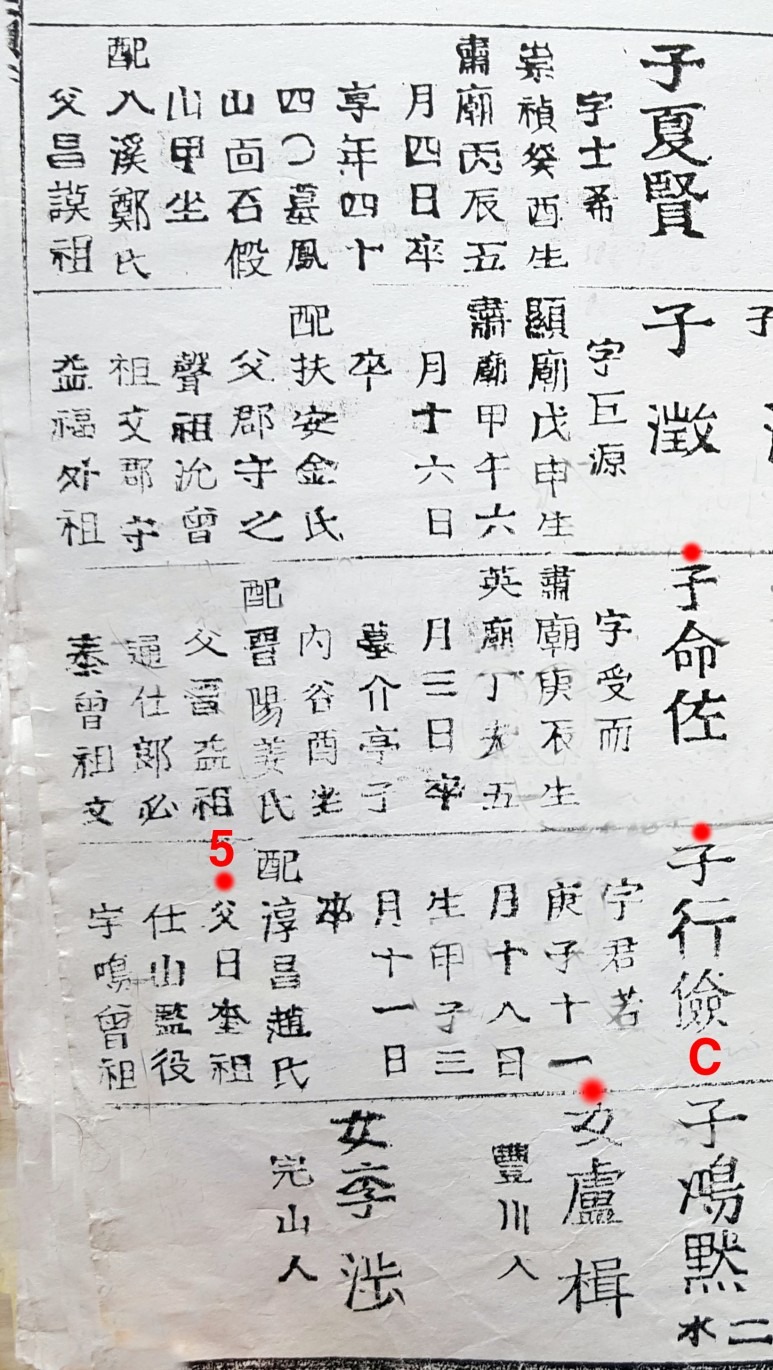 子夏賢
字士希
崇禎癸酉生
肅廟丙辰五
月四日卒
享年四十
四〇墓鳳
山面石假
山甲坐
配八溪鄭氏
父昌謨祖
子
子 澂
字巨源
顯廟戊申生
肅廟甲午六
月十六日
卒
配扶安金氏
父郡守之
聲祖沇曾
祖文郡守
益福外祖
子命佐
字受而
肅廟庚辰生
英廟丁 五
月三日卒
墓介亭子
內谷酉坐
配晋陽姜氏
父晋益祖
通仕郎必
秦曾祖文
子行儉
C
字君若
庚子十一
月十八日
生甲子三
月十一日
卒
配淳昌趙氏
5
父日奎祖
仕山監役
字鳴曾祖
子鴻默
二水
女盧楫
豐川人
女李
完山人